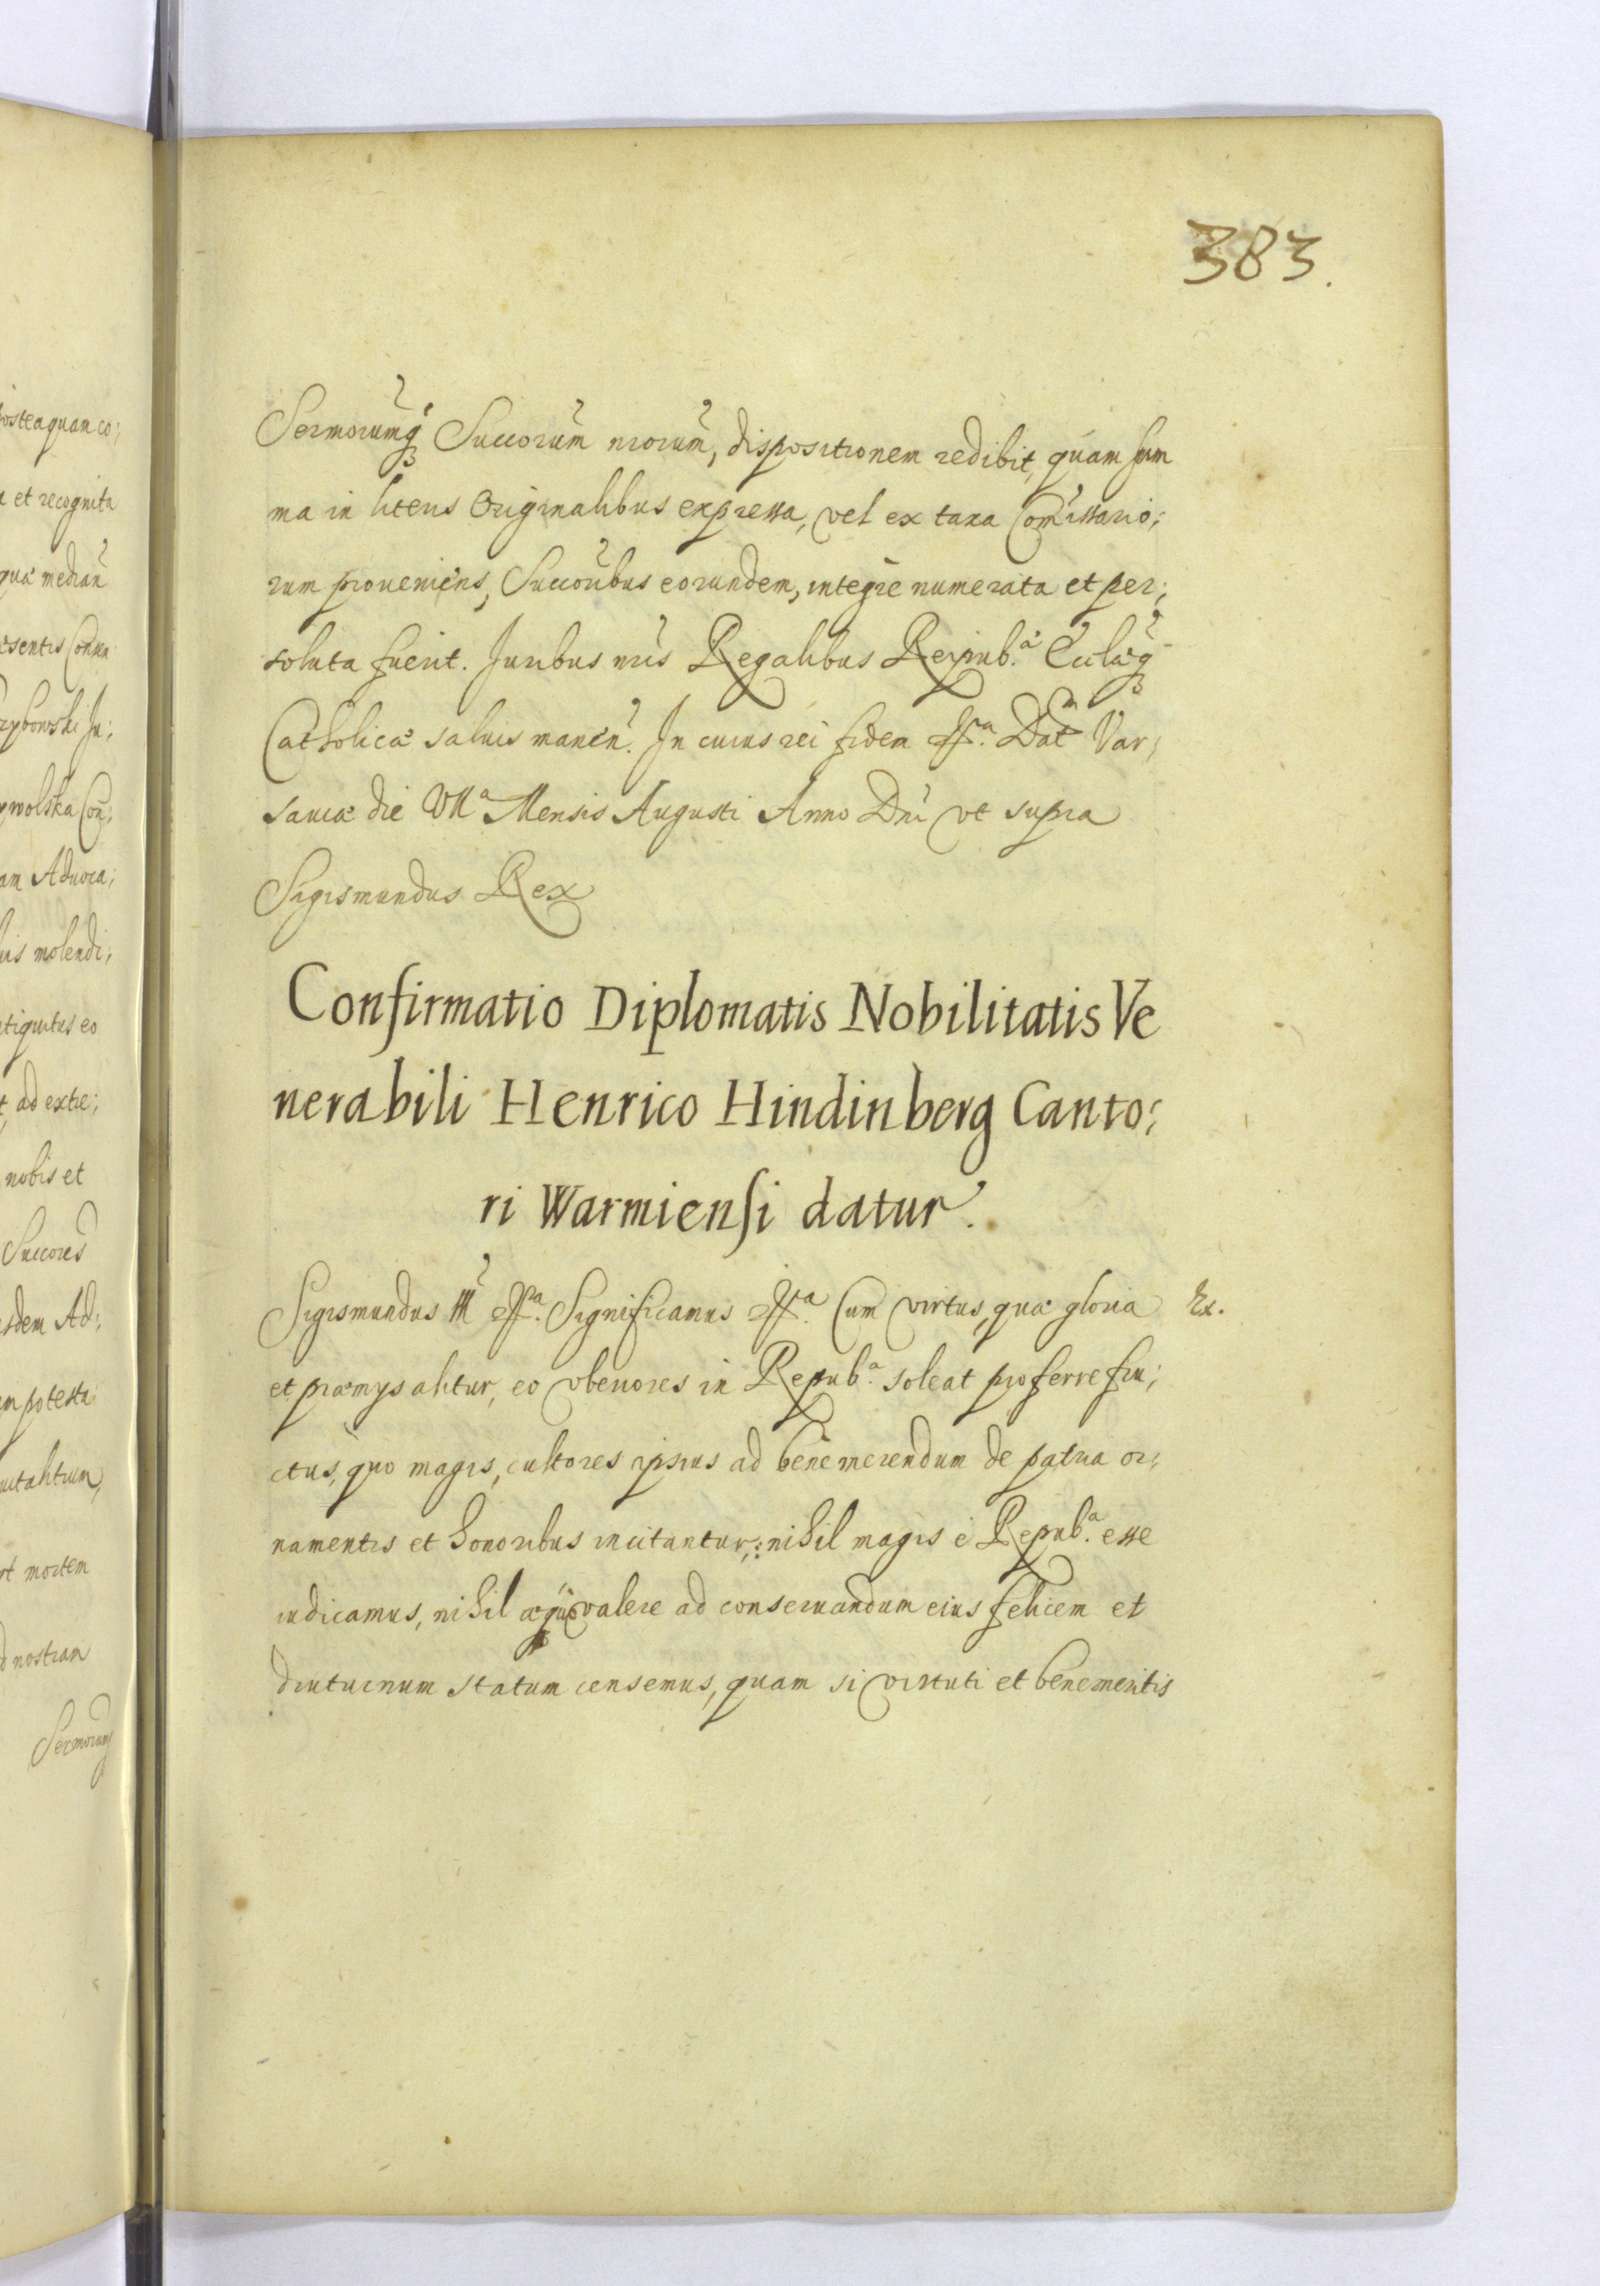 383.
Sermorumq́ʒ Succorum nrorum, dispositionem redibit, quam sum
ma in literis Originalibus expressa, vel ex taxa Comissario;
rum proueniens, Succoribus eorundem, integre numerata et per;
soluta fuerit. Juribus nris Regalibus Reipub.ᵃ Ecclæqʒ
Catholicæ saluis manen. In cuius rei fidem Dat Var;
sauiæ die VIIᵃ Mensis Augusti Anno Dni vt supra
Sigismundus Rex
Confirmatio Diplomatis Nobilitatis Ve
nerabili Henrico Hindinberg Canto;
ri Warmiensi datur.
Sigismundus III Significamus Cum virtus, quæ gloria Ex.
et præmys alitur, eo vberiores in Repub.ᵃ soleat proferre fru;
ctus, quo magis, cultores ipsius ad bene merendum de patria or;
namentis et honoribus incitantur, nihil magis è Repub.ᵃ esse
iudicamus, nihil æque valere ad conseruandum eius felicem et
diuturnum statum censemus, quam si virtuti et benemeritis
osteaquam co;
et recognita
quæ median
æsentis
Ju;
am Aduoca;
uis molendi;
ntiquitus eo
ad extre;
nobis et
Succores
sdem Ad;
m potesta
mortem
d nostram
Sermorumq